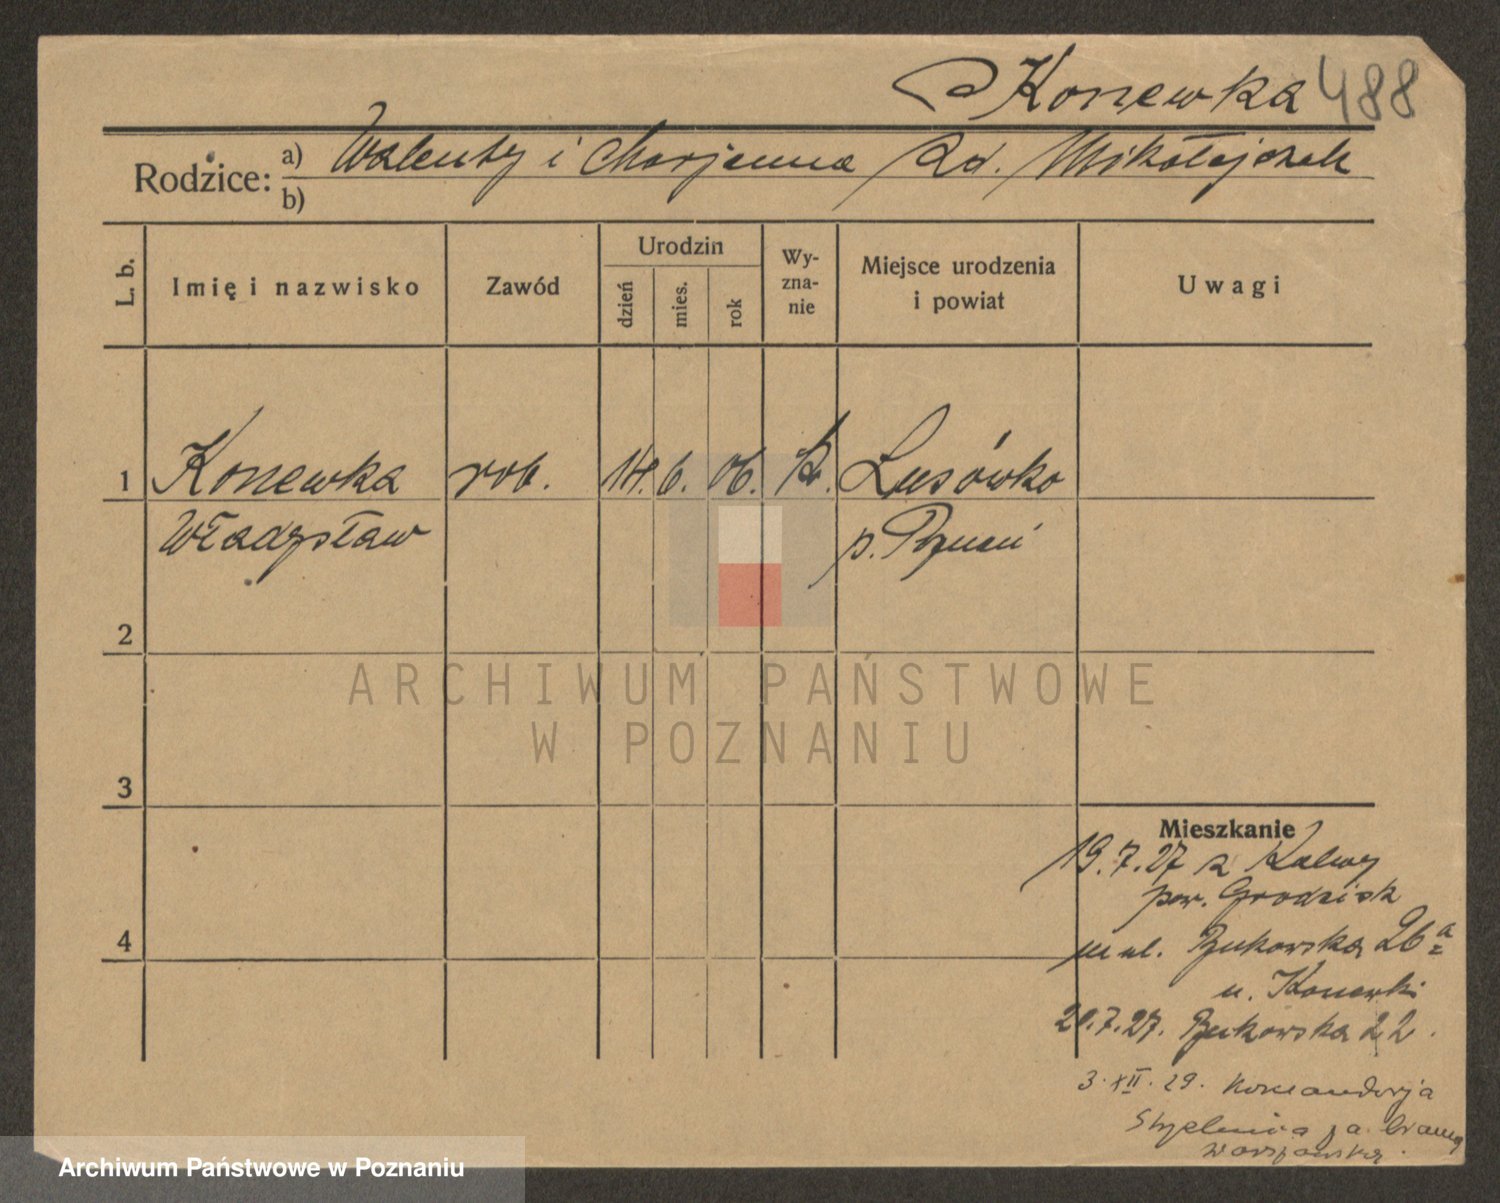 Konewka 488
Rodzice: a) Walenty i Marjanna zd. Mikołajczak
b)
L. b.
Imię i nazwisko
Zawód
Urodzin
dzień
mies.
rok
Wy-
zna-
nie
Miejsce urodzenia
i powiat
Uwagi
1 Konewka rob. 14. 6. 06. k. Lusówko
Władysław p. Poznań
2
3
4
Mieszkanie
19.7.27 z Kalwy
pow. Grodzisk
ul. Bukowska 26a
u. Konewki
20.7.27. Bukowska 22.
3.XII.29. Komandorja
Strzelnica za Bramą
Warszawską.
ARCHIWUM PAŃSTWOWE
W POZNANIU
Archiwum Państwowe w Poznaniu